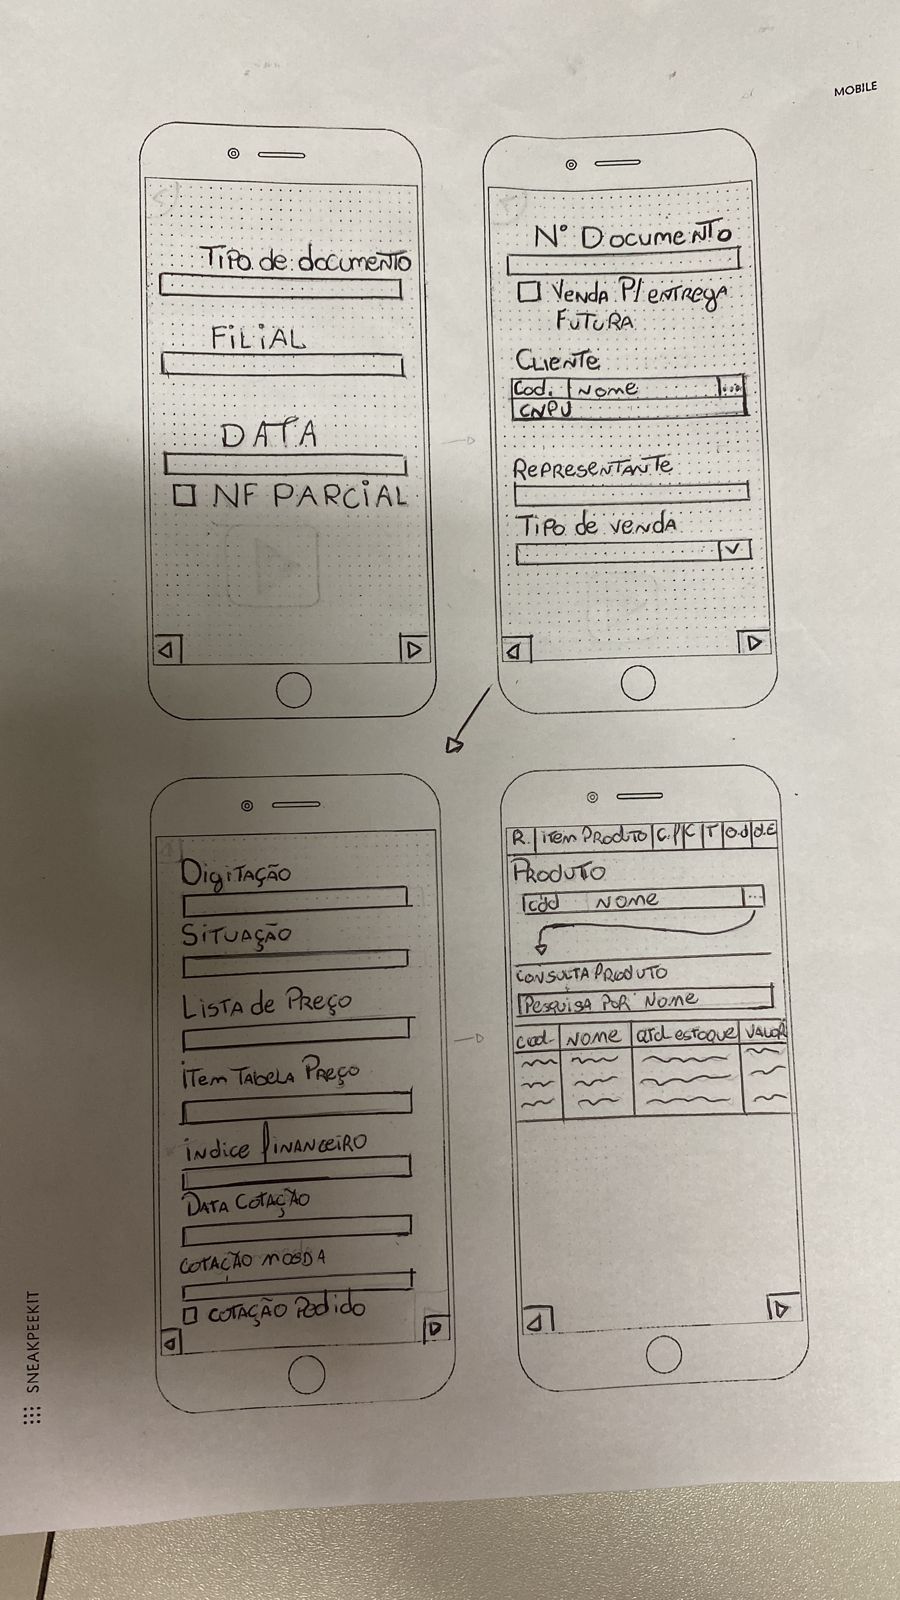 MOBILE
Tipo de documento
FILIAL
DATA
NF PARCIAL
N° Documento
VENDA P/ ENTREGA
FUTURA
CLIENTE
Cod. NOME ...
CNPJ
Representante
Tipo de venda
Digitação
Situação
Lista de Preço
Item Tabela Preço
índice financeiro
Data Cotação
COTAÇÃO MOEDA
COTAÇÃO Pedido
R. item Produto C.P C T O.d d.E
Produto
cód NOME ...
CONSULTA PRODUTO
Pesquisa por Nome
cod. NOME Qtd estoque VALOR
SNEAKPEEKIT